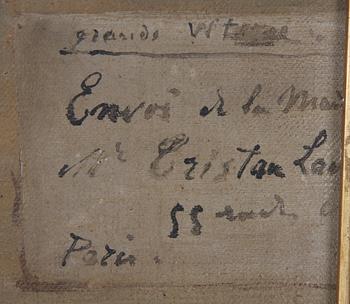 grande vitesse.
Envoi de la Mai
Mr Tristan La
55 rue de
Paris.